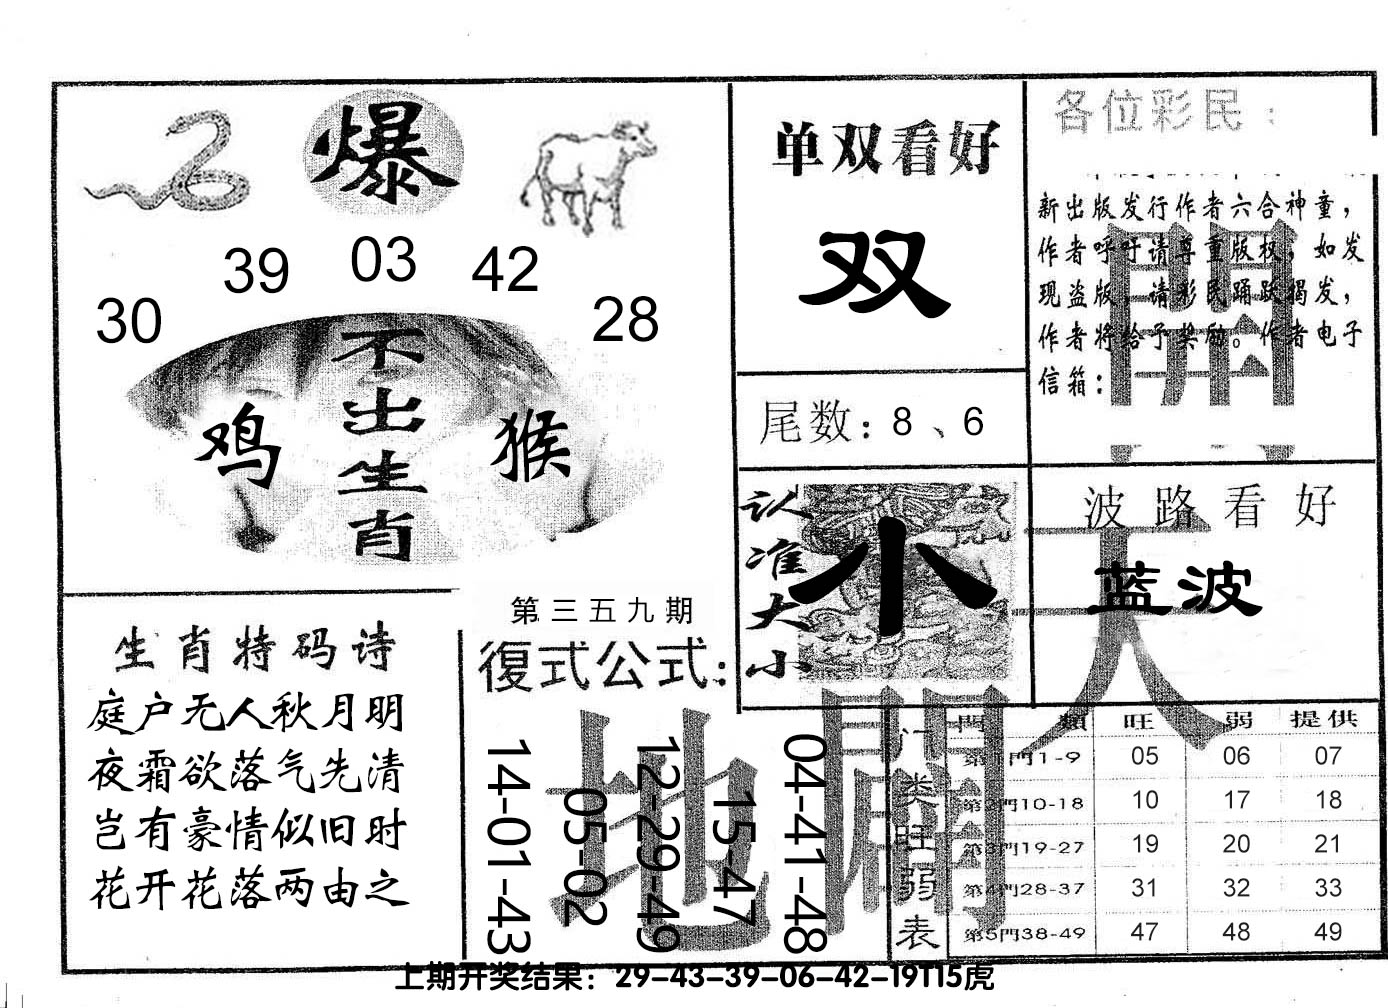 爆
39 03 42
30 28
不出生肖
鸡 猴
单双看好
双
尾数：8、6
各位彩民：
新出版发行作者六合神童，
作者呼吁请尊重版权，如发
现盗版，请彩民踊跃揭发，
作者将给予奖励。作者电子
信箱：
開
认准大小
小
波路看好
蓝波
天
生肖特码诗
庭户无人秋月明
夜霜欲落气先清
岂有豪情似旧时
花开花落两由之
第三五九期
復式公式：
14-01-43
05-02
12-29-49
15-47
04-41-48
地
門类旺弱表
門類 旺 弱 提供
第1門1-9 05 06 07
第2門10-18 10 17 18
第3門19-27 19 20 21
第4門28-37 31 32 33
第5門38-49 47 48 49
上期开奖结果：29-43-39-06-42-19T15虎